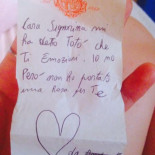 Cara Signorina mi
ha detto Totò che
Ti Emozioni. io No
Però non ho portato
una Rosa per Te!
da